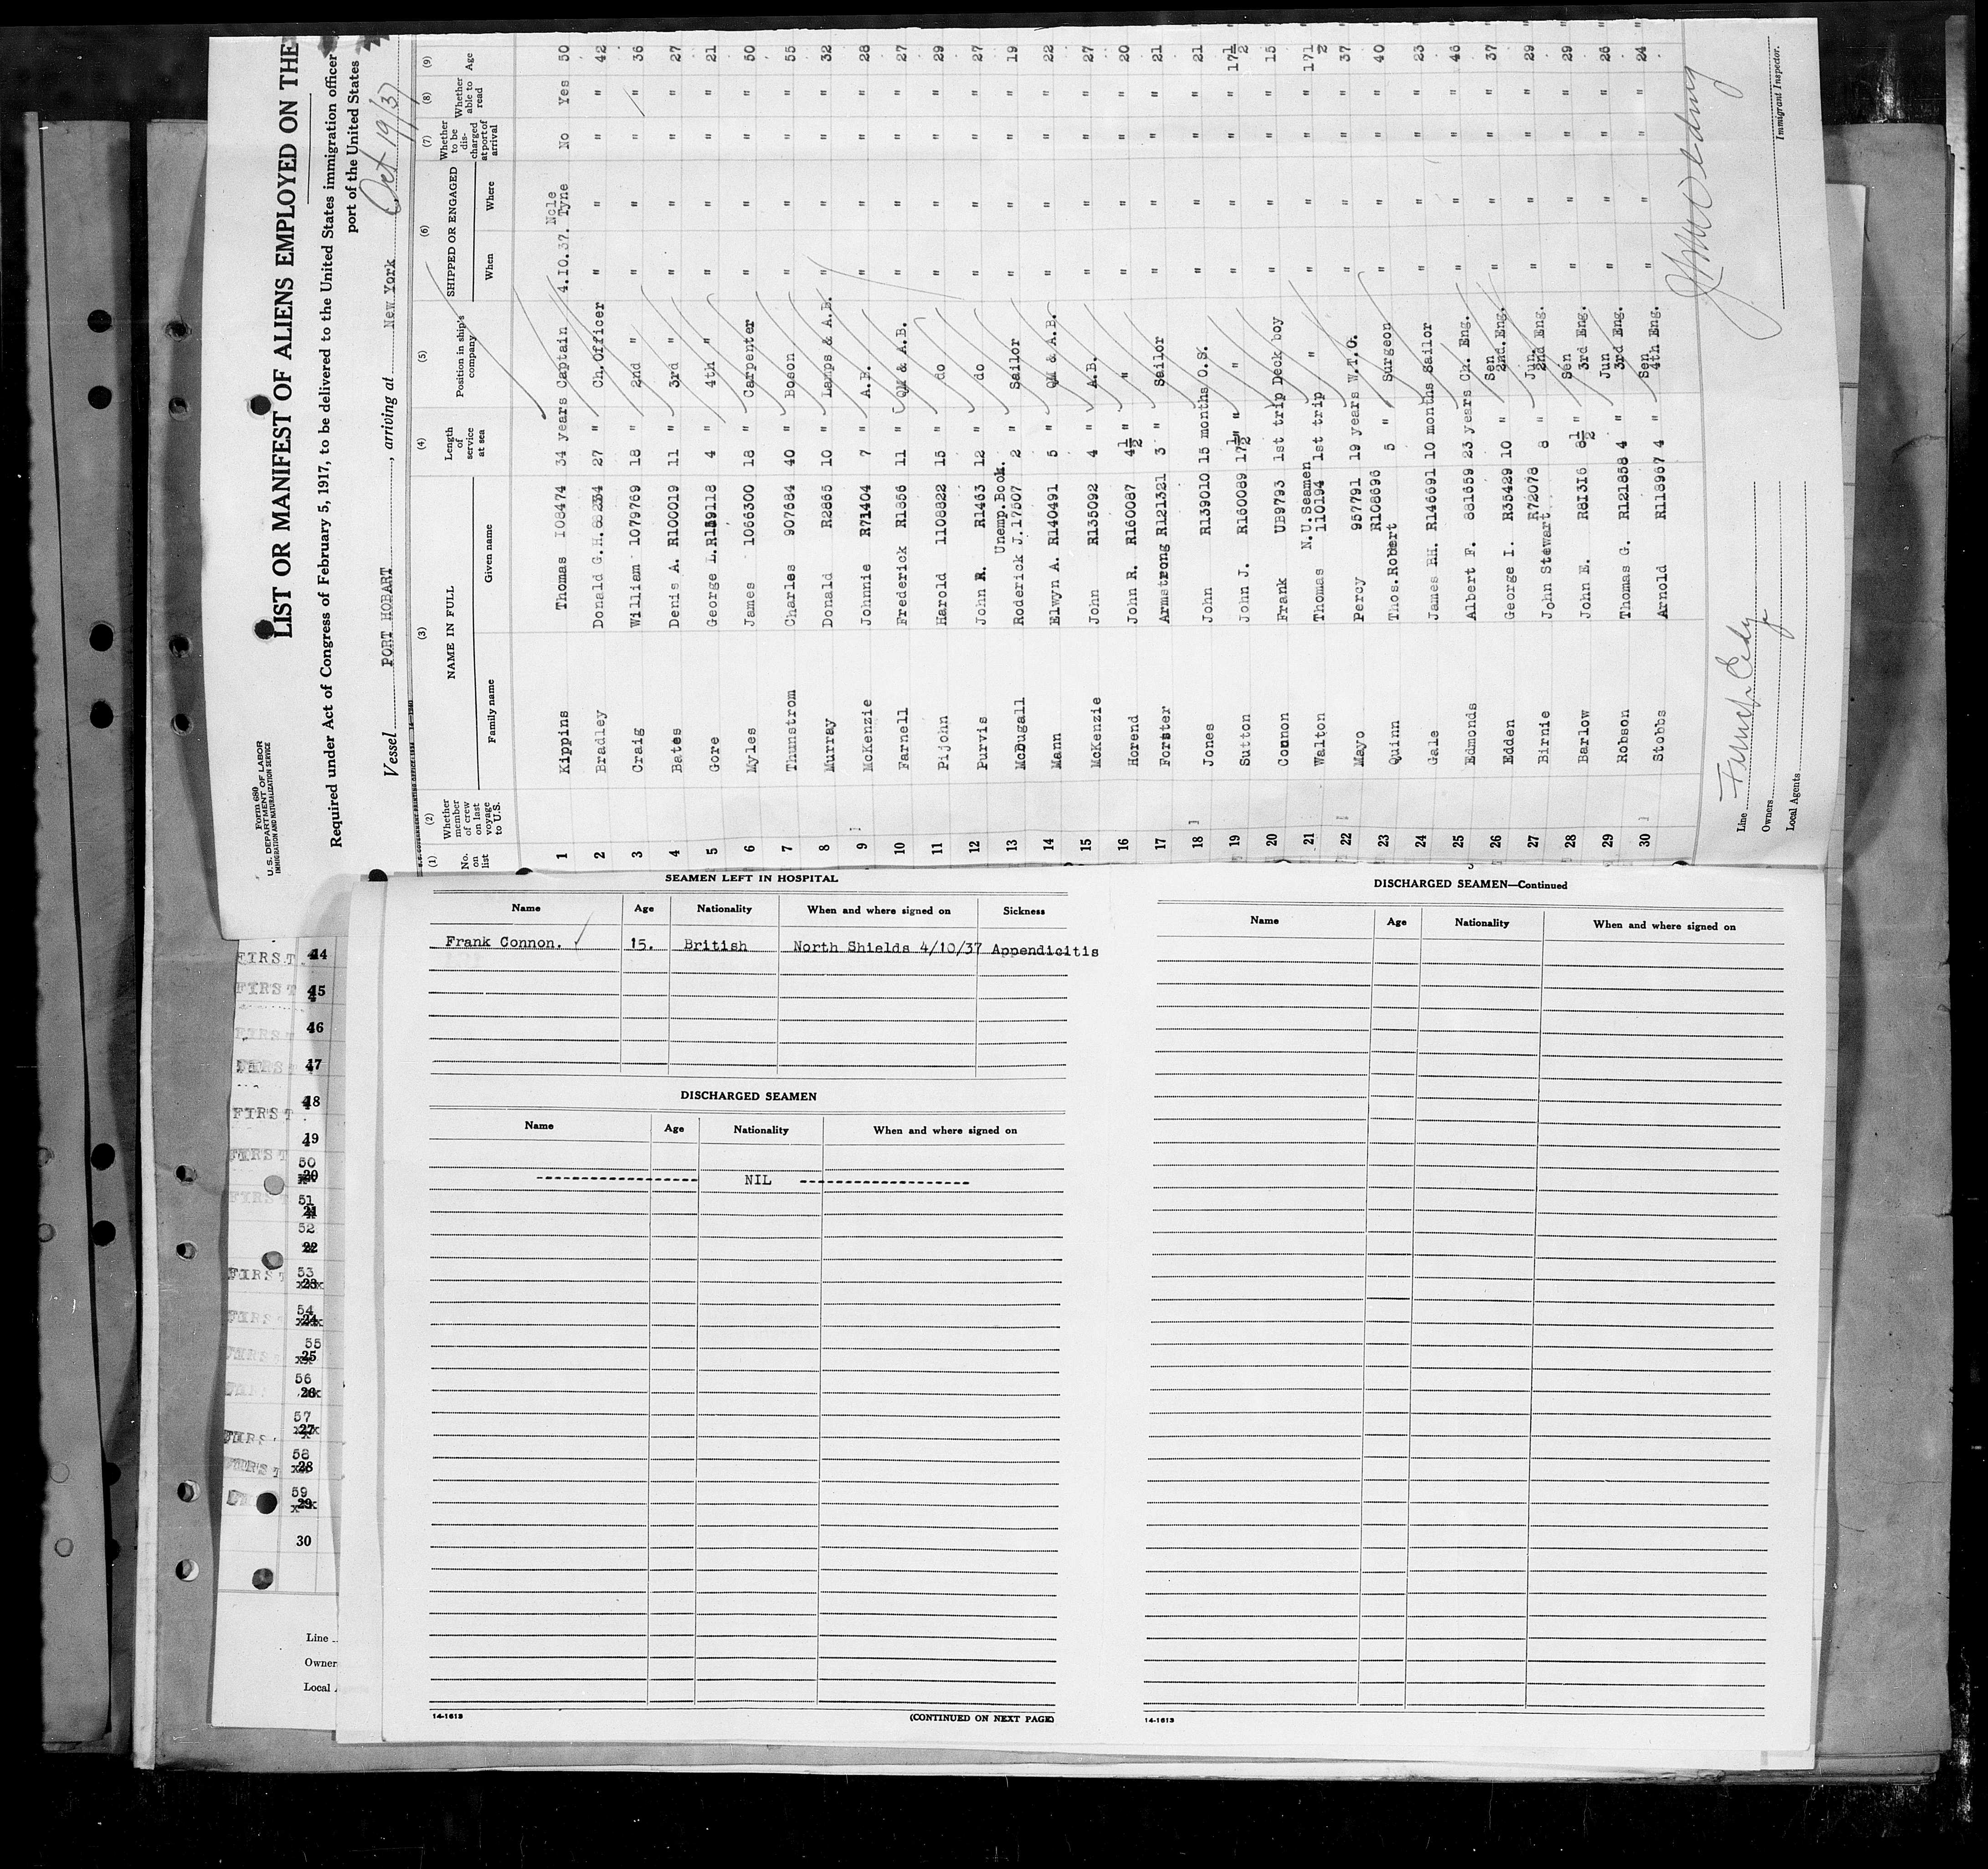 Form 680
U. S. DEPARTMENT OF LABOR
IMMIGRATION AND NATURALIZATION SERVICE
LIST OR MANIFEST OF ALIENS EMPLOYED ON THE
Required under Act of Congress of February 5, 1917, to be delivered to the United States immigration officer
port of the United States
Vessel PORT HOBART, arriving at New York Oct 19/37
(1) (2) (3) (4) (5) (6) (7) (8) (9)
No. on list Whether member of crew on last voyage to U.S. NAME IN FULL Family name Given name Length of service at sea Position in ship's company SHIPPED OR ENGAGED When Where Whether to be discharged at port of arrival Whether able to read Age
1 Kippins Thomas 108474 34 years Captain 4.10.37. Ncle Tyne No Yes 50
2 Bradley Donald G.H. 27 " Ch.Officer " " " " 42
3 Craig William 1079769 18 " 2nd " " " " " 36
4 Bates Denis A. R100019 11 " 3rd " " " " 27
5 Gore George L. 4 " 4th " " " " " 21
6 Myles James 1066300 18 " Carpenter " " " " 50
7 Thunstrom Charles 907684 40 " Boson " " " " 55
8 Murray Donald R2865 10 " Lamps & A.B. " " " " 32
9 McKenzie Johnnie R71404 7 " A.B. " " " " 28
10 Farnell Frederick R1856 11 " QM & A.B. " " " " 27
11 Pijohn Harold 1108822 15 " do " " " " 29
12 Purvis John R. R1463 12 " do " " " " 27
13 McDugall Roderick J. Unemp.Book. 17507 2 " Sailor " " " " 19
14 Mann Elwyn A. R140491 5 " QM & A.B. " " " " 22
15 McKenzie John R135092 4 " A.B. " " " " 27
16 Horend John R. R160087 4½ " " " " " " 20
17 Forster Armstrong R121321 3 " Sailor " " " " 21
18 Jones John R139010 15 months O.S. " " " " 21
19 Sutton John J. R160089 17½" " " " " " " 17½
20 Connon Frank UB9793 1st trip Deck boy " " " " 15
21 Walton Thomas N.U.Seamen 110194 1st trip " " " " " 17½
22 Mayo Percy 957791 19 years W.T.O. " " " " 37
23 Quinn Thos.Robert R108696 5 " Surgeon " " " " 40
24 Gale James H. R146691 10 months Sailor " " " " 23
25 Edmonds Albert F. 881659 23 years Ch. Eng. " " " " 46
26 Edden George I. R35429 10 " Sen 2nd. Eng. " " " " 37
27 Birnie John Stewart R72078 8 " Jun. 2nd Eng. " " " " 29
28 Barlow John E. R81316 8½ " Sen 3rd Eng. " " " " 29
29 Robson Thomas G. R121858 4 " Jun 3rd Eng. " " " " 26
30 Stobbs Arnold R118967 4 " Sen 4th Eng. " " " " 24
Line
Owners
Local Agents
Immigrant Inspector.
SEAMEN LEFT IN HOSPITAL
Name Age Nationality When and where signed on Sickness
Frank Connon. 15. British North Shields 4/10/37 Appendicitis
DISCHARGED SEAMEN
Name Age Nationality When and where signed on
NIL
14-1613 (CONTINUED ON NEXT PAGE)
DISCHARGED SEAMEN—Continued
Name Age Nationality When and where signed on
14-1613
FIRST 44
FIRST 45
FIRST 46
47
FIRST 48
49
FIRST 50 20
FIRST 51 21
52 22
FIRST 53 23
FIRST 54 24
55 25
56 26
57 27
58 28
59 29
30
Line
Owner
Local